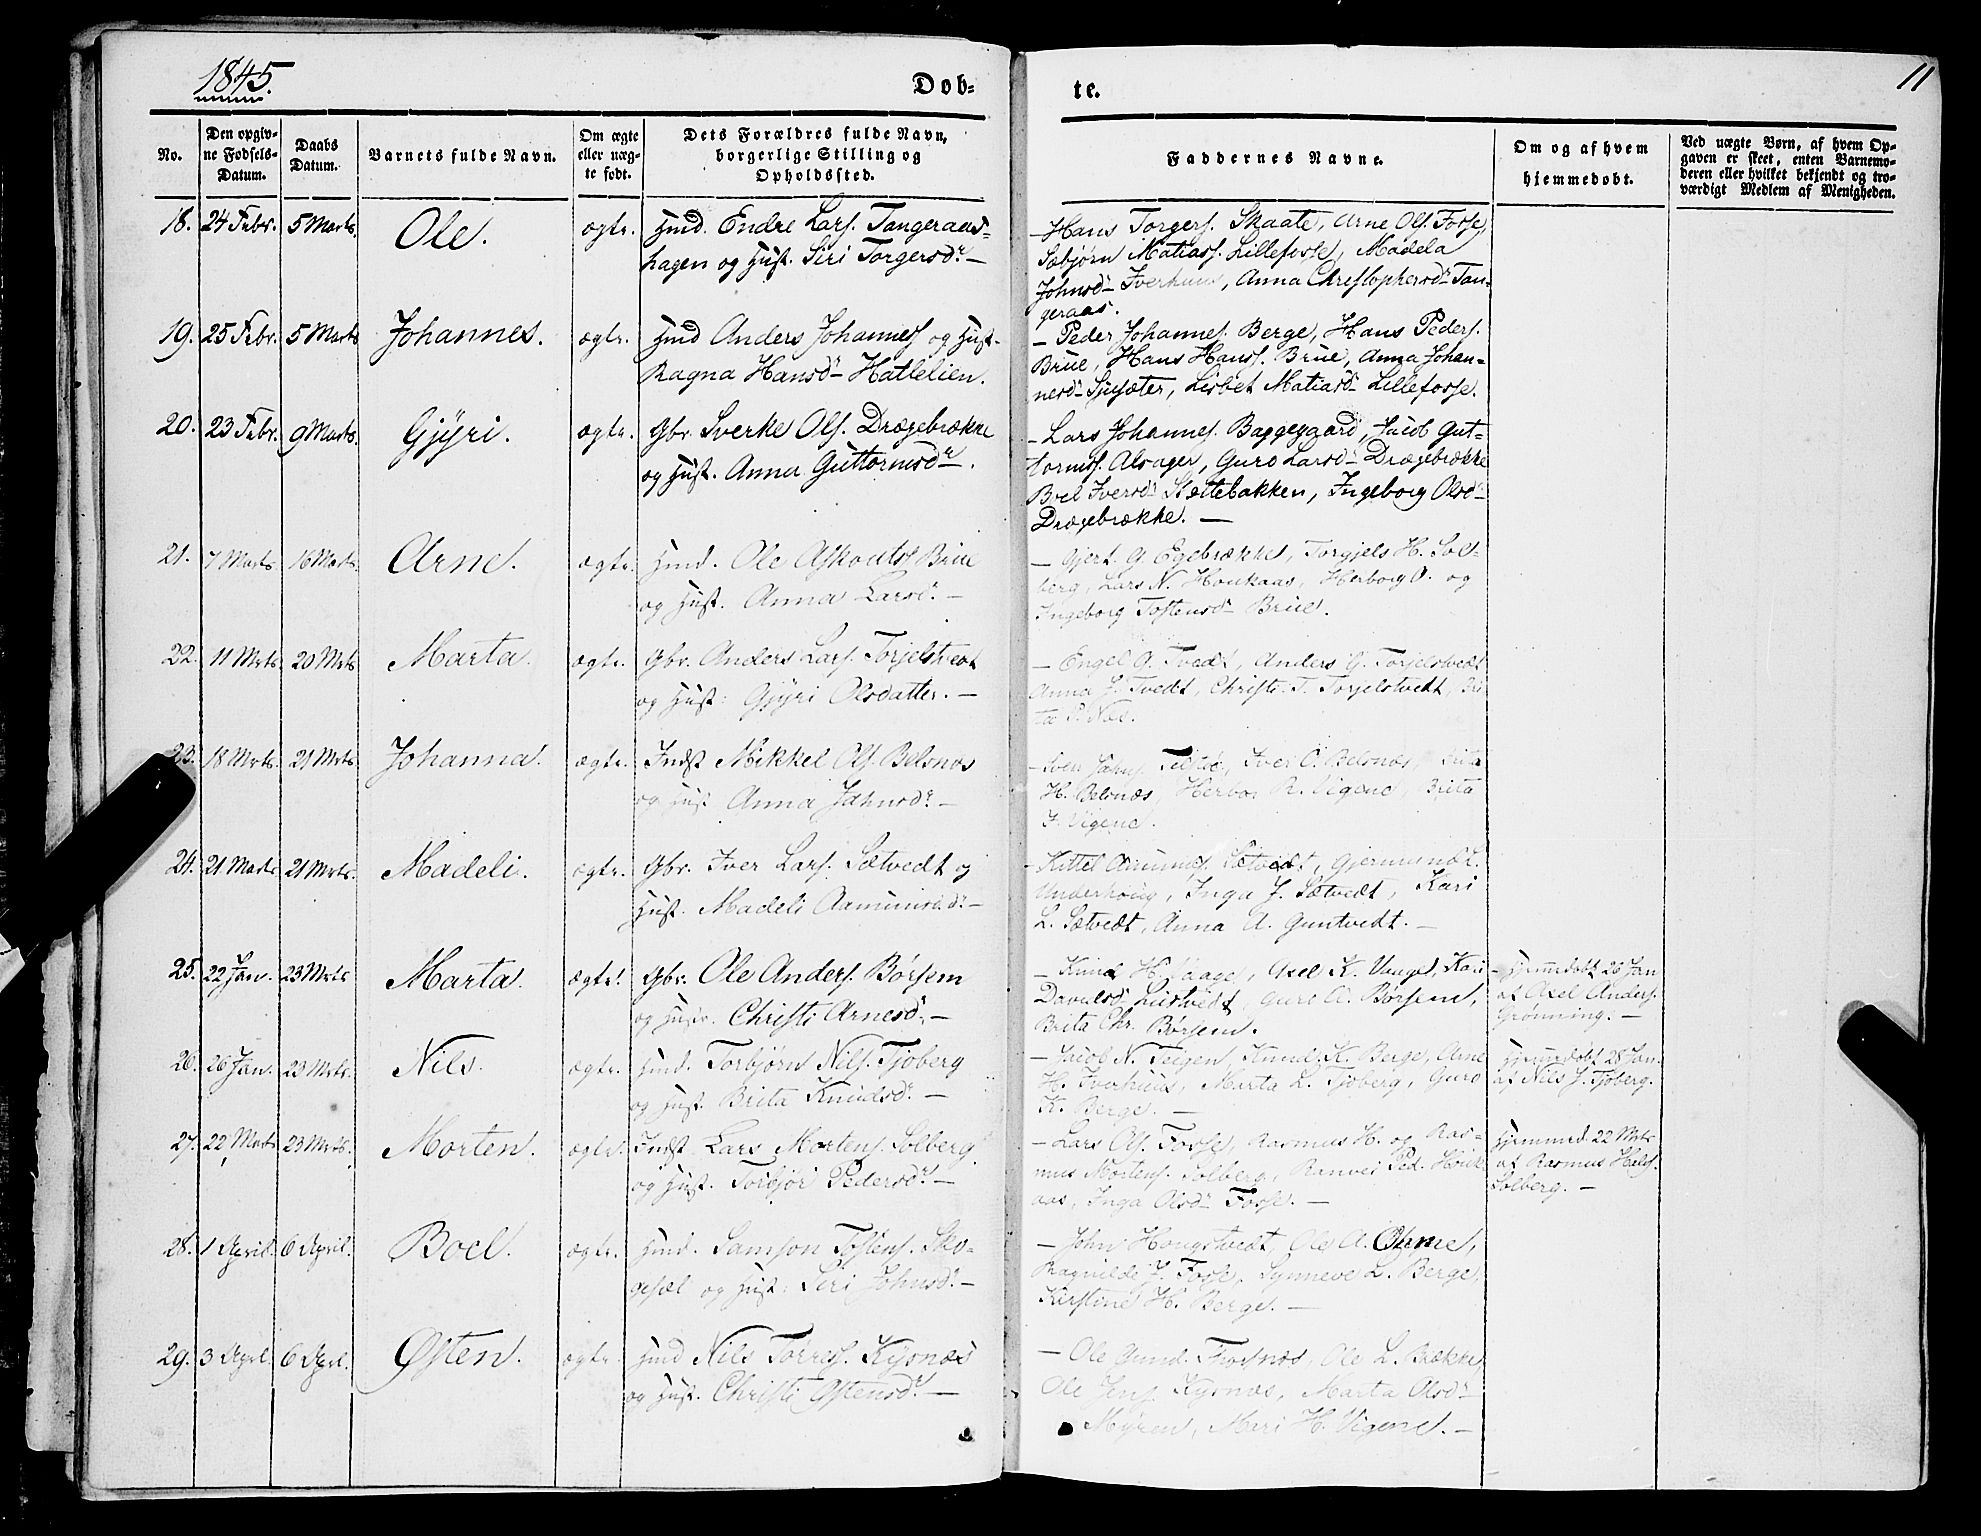 1845.
Døb-
te.
11
No.
Den opgiv-
ne Fødsels-
Datum.
Daabs
Datum.
Barnets fulde Navn.
Om ægte
eller uæg-
te født.
Dets Forældres fulde Navn,
borgerlige Stilling og
Opholdssted.
Faddernes Navne.
Om og af hvem
hjemmedøbt.
Ved uægte Børn, af hvem Op-
gaven er skeet, enten Barnemo-
deren eller hvilket bekjendt og tro-
værdigt Medlem af Menigheden.
18. 24 Febr. 5 Marts. Ole. ægte. Hmd. Endre Lars. Tangeraas-
hagen og Hust. Siri Torgersdr. —
— Hans Torgers. Skaate, Arne Ols. Fosse,
Sæbjørn Matiass. Lillefosse, Madela
Johnsdr Iverhuus, Anna Christophersdr Tan-
geraas.
19. 25 Febr. 5 Marts Johannes. ægte. Hmd Anders Johanness og Hust.
Ragna Hansdr Hatlelien.
— Peder Johannes. Berge, Hans Peders.
Brüe, Hans Hanss. Brüe, Anna Johan-
nesdr Sjusæter, Lisbet Matiasdr Lillefosse.
20. 23 Febr. 9 Marts. Gjyri. ægte. Gbr. Sverke Ols. Drægebrække
og Hust. Anna Guttormsdr.
— Lars Johannes. Baggegaard, Jacob Gut-
torms. Alsager, Guro Larsdr Drægebrække
Boel Iversdr Slettebakken, Ingeborg Olsdr
Drægebrække. —
21. 7 Marts 16 Marts. Arne. ægte. Hmd. Ole Askoutss Brüe
og Hust. Anna Larsdr. —
— Gjert. G. Egebrække, Torgjels H. Sol-
berg, Lars N. Houkaas, Herborg O. og
Ingeborg Tostensdr Brüe.
22. 11 Mrts 20 Mrts Marta. ægte. Gbr. Anders Lars. Torjelstvedt
og Hust: Gjyri Olsdatter. —
— Engel O. Tvedt, Anders G. Torjelstvedt
Anna J. Tvedt, Christi T. Torjelstvedt, Bri-
ta P. Noe.
23. 18 Mrts. 21 Mrts Johanna. ægte. Indst Mikkel Ols. Belsnæs
og Hust Anna Jahnsdr. —
— Sven Jahns. Iver O. Belsnæs, Brita
H. Belsnæs, R. Vigene, Brita
J. Vigene.
24. 21 Marts 21 Mrts. Madeli. ægte. Gbr. Iver Lars. Sætvedt og
Hust. Madeli Aamundsdr. —
— Kittel Sætvedt, Gjermund L.
Underhoug, Inga J. Sætvedt, Kari
L. Sætvedt, Anna A. Guntvedt. —
25. 22 Jan. 23 Mrts Marta. ægte. Gbr. Ole Anders. Børsem
og Hust. Christi Arnesdr. —
— Knud H. Vaage, Axel K. Vaage, Kari
Davidsdr Leistvedt, Guro A. Børsem,
Brita Chr. Børsem.
— Hjemmedøbt 26 Jan
af Axel Anders.
Grønning. —
26. 26 Jan. 23 Mrts. Nils. ægte. Hmd. Torbjørn Nils. Tjoberg
og Hust. Brita Knudsdr. —
— Jacob N. Teigen, Knud K. Berge, Arne
H. Iverhuus, Marta L. Tjoberg, Guro
K. Berge. —
Hjemmedøbt 28 Jan.
af Nils J. Tjoberg.
27. 22 Marts 23 Mrts. Morten. ægte. Indst Lars Mortens. Solberg
og Hust. Torbjør Pedersdr. —
— Lars Ols. Fosse, Rasmus H. og Ras-
mus Mortens. Solberg, Ranvei Ped. Houk-
aas, Inga Olsdr Fosse. —
Hjemmed. 22 Mrts
af Rasmus Hals.
Solberg. —
28. 1 April. 6 April. Boel. ægte. Hmd. Samson Tostens. Sko-
gesæl og Hust: Siri Johnsdr. —
— John Hougstvedt, Ole A.
Ragnilde J. Fosse, Synneve L. Berge,
Kirstine H. Berge. —
29. 3 Aprl. 6 Aprl. Østen. ægte. Hmd Nils Torres. Kysnæs
og Hust. Christi Ostensdr. —
— Ole Gund. Fosnæs, Ole L. Brække,
Ole Jens. Kysnæs, Marta Olsdr
Myren, Mari H. Vigene. —